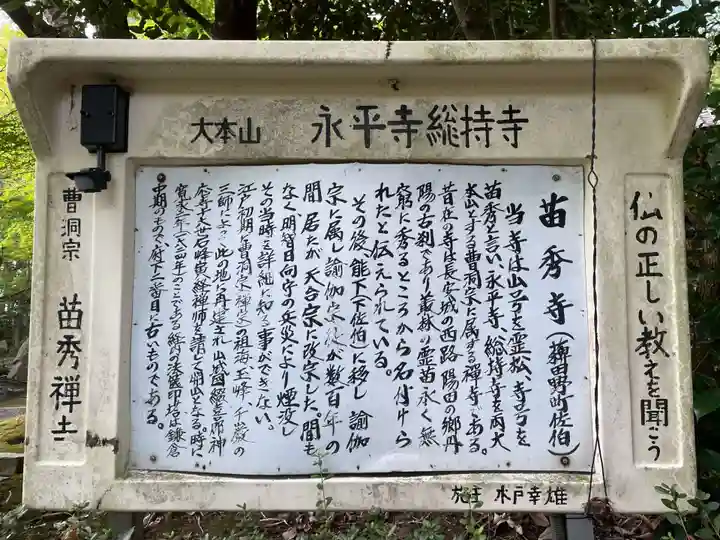 大本山 永平寺 総持寺
仏の正しい教えを聞こう
苗秀寺(薭田野町佐伯)
当寺は山号を霊松、寺号を
苗秀と言い、永平寺、総持寺を両大
本山とする曹洞宗に属する禅寺である。
昔在の寺は長安城の西路 陽田の郷丹
陽の古刹であり叢林の霊苗永く無
窮に秀るところから名付けら
れたと伝えられている。
その後、能下(下佐伯)に移し 諭伽
宗に属し諭伽宗徒が数百年の
間居たが天台宗に改宗した。間も
なく、明智日向守の兵災により煙滅し
その当時を詳細に知る事ができない。
江戸初期に曹洞宗禅定の祖海、玉峰、千巌の
三師によって此の地に再建され山城国
寺十八世石峰寅経禅師を請して開山となる。時に
のことである 鎌倉
中期のもので府下二番目に古いものである。
曹洞宗 苗秀禅寺
施主 水戸幸雄